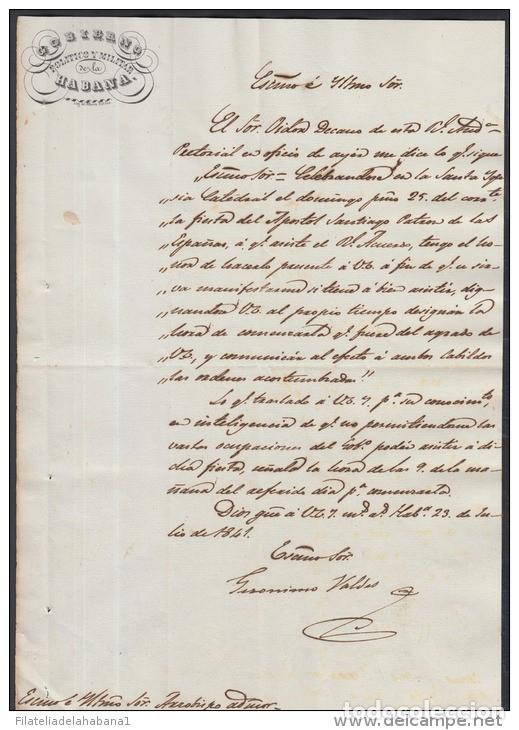 GOBIERNO
POLITICO Y MILITAR
de la
HABANA.
Escmo é Yltmo Sor.
El Sor. Oidor Decano de esta Rl. Aud.a
Pretorial en oficio de ayer me dice lo qe. sigue
„Escmo Sor = Celebrandose en la Santa Ygle
„sia Catedral el domingo pmo 25. del corrte.
„la fiesta del Apostol Santiago Patron de las
„Españas, á qe. asiste el Rl. Acuerdo, tengo el ho
„nor de hacerlo presente á VE. á fin de qe. se sir
„va manifestarme si tiene á bien asistir, dig
„nandose VE. al propio tiempo designar la
„hora de comenzarla qe. fuere del agrado de
„VE, y comunicar al efecto á ambos Cabildos
„las ordenes acostumbradas"
Lo qe. traslado á VE. Y. pa. su conocimto.,
en inteligencia de qe. no permitiendome las
vastas ocupaciones del Gobo. poder asistir á di
cha fiesta, señalo la hora de las 9. de la ma
ñana del referido dia pa. comenzarla.
Dios gue. á VE. Y. ms. as. Haba. 23. de Ju
lio de 1841.
Escmo Sor.
Geronimo Valdes
Escmo é Yltmo Sor. Arzobispo admor.
© Filateliadelahabana1
todocoleccion.net
www.delcampe.net